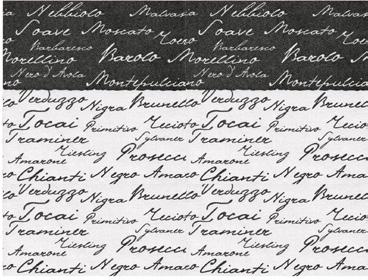 Nebbiolo Malvasia Nebbiolo Malvasia
Soave Moscato Soave Moscato
Zoero Zoero
Barbaresco Barbaresco
Morellino Barolo Morellino Barolo
Nero d'Avola Nero d'Avola
Montepulciano Montepulciano
Verduzzo Nigra Brunello Verduzzo Nigra Brunello
Tocai Primitivo Recioto Tocai Primitivo Recioto
Traminer Sylvaner Traminer Sylvaner
Riesling Prosecco Riesling Prosecco
Amarone Amarone
Chianti Negro Amaro Chianti Negro
Verduzzo Nigra Brunello Verduzzo Nigra Brunello
Tocai Primitivo Recioto Tocai Primitivo Recioto
Traminer Sylvaner Traminer Sylvaner
Riesling Prosecco Riesling Prosecco
Amarone Amarone
Chianti Negro Amaro Chianti Negro